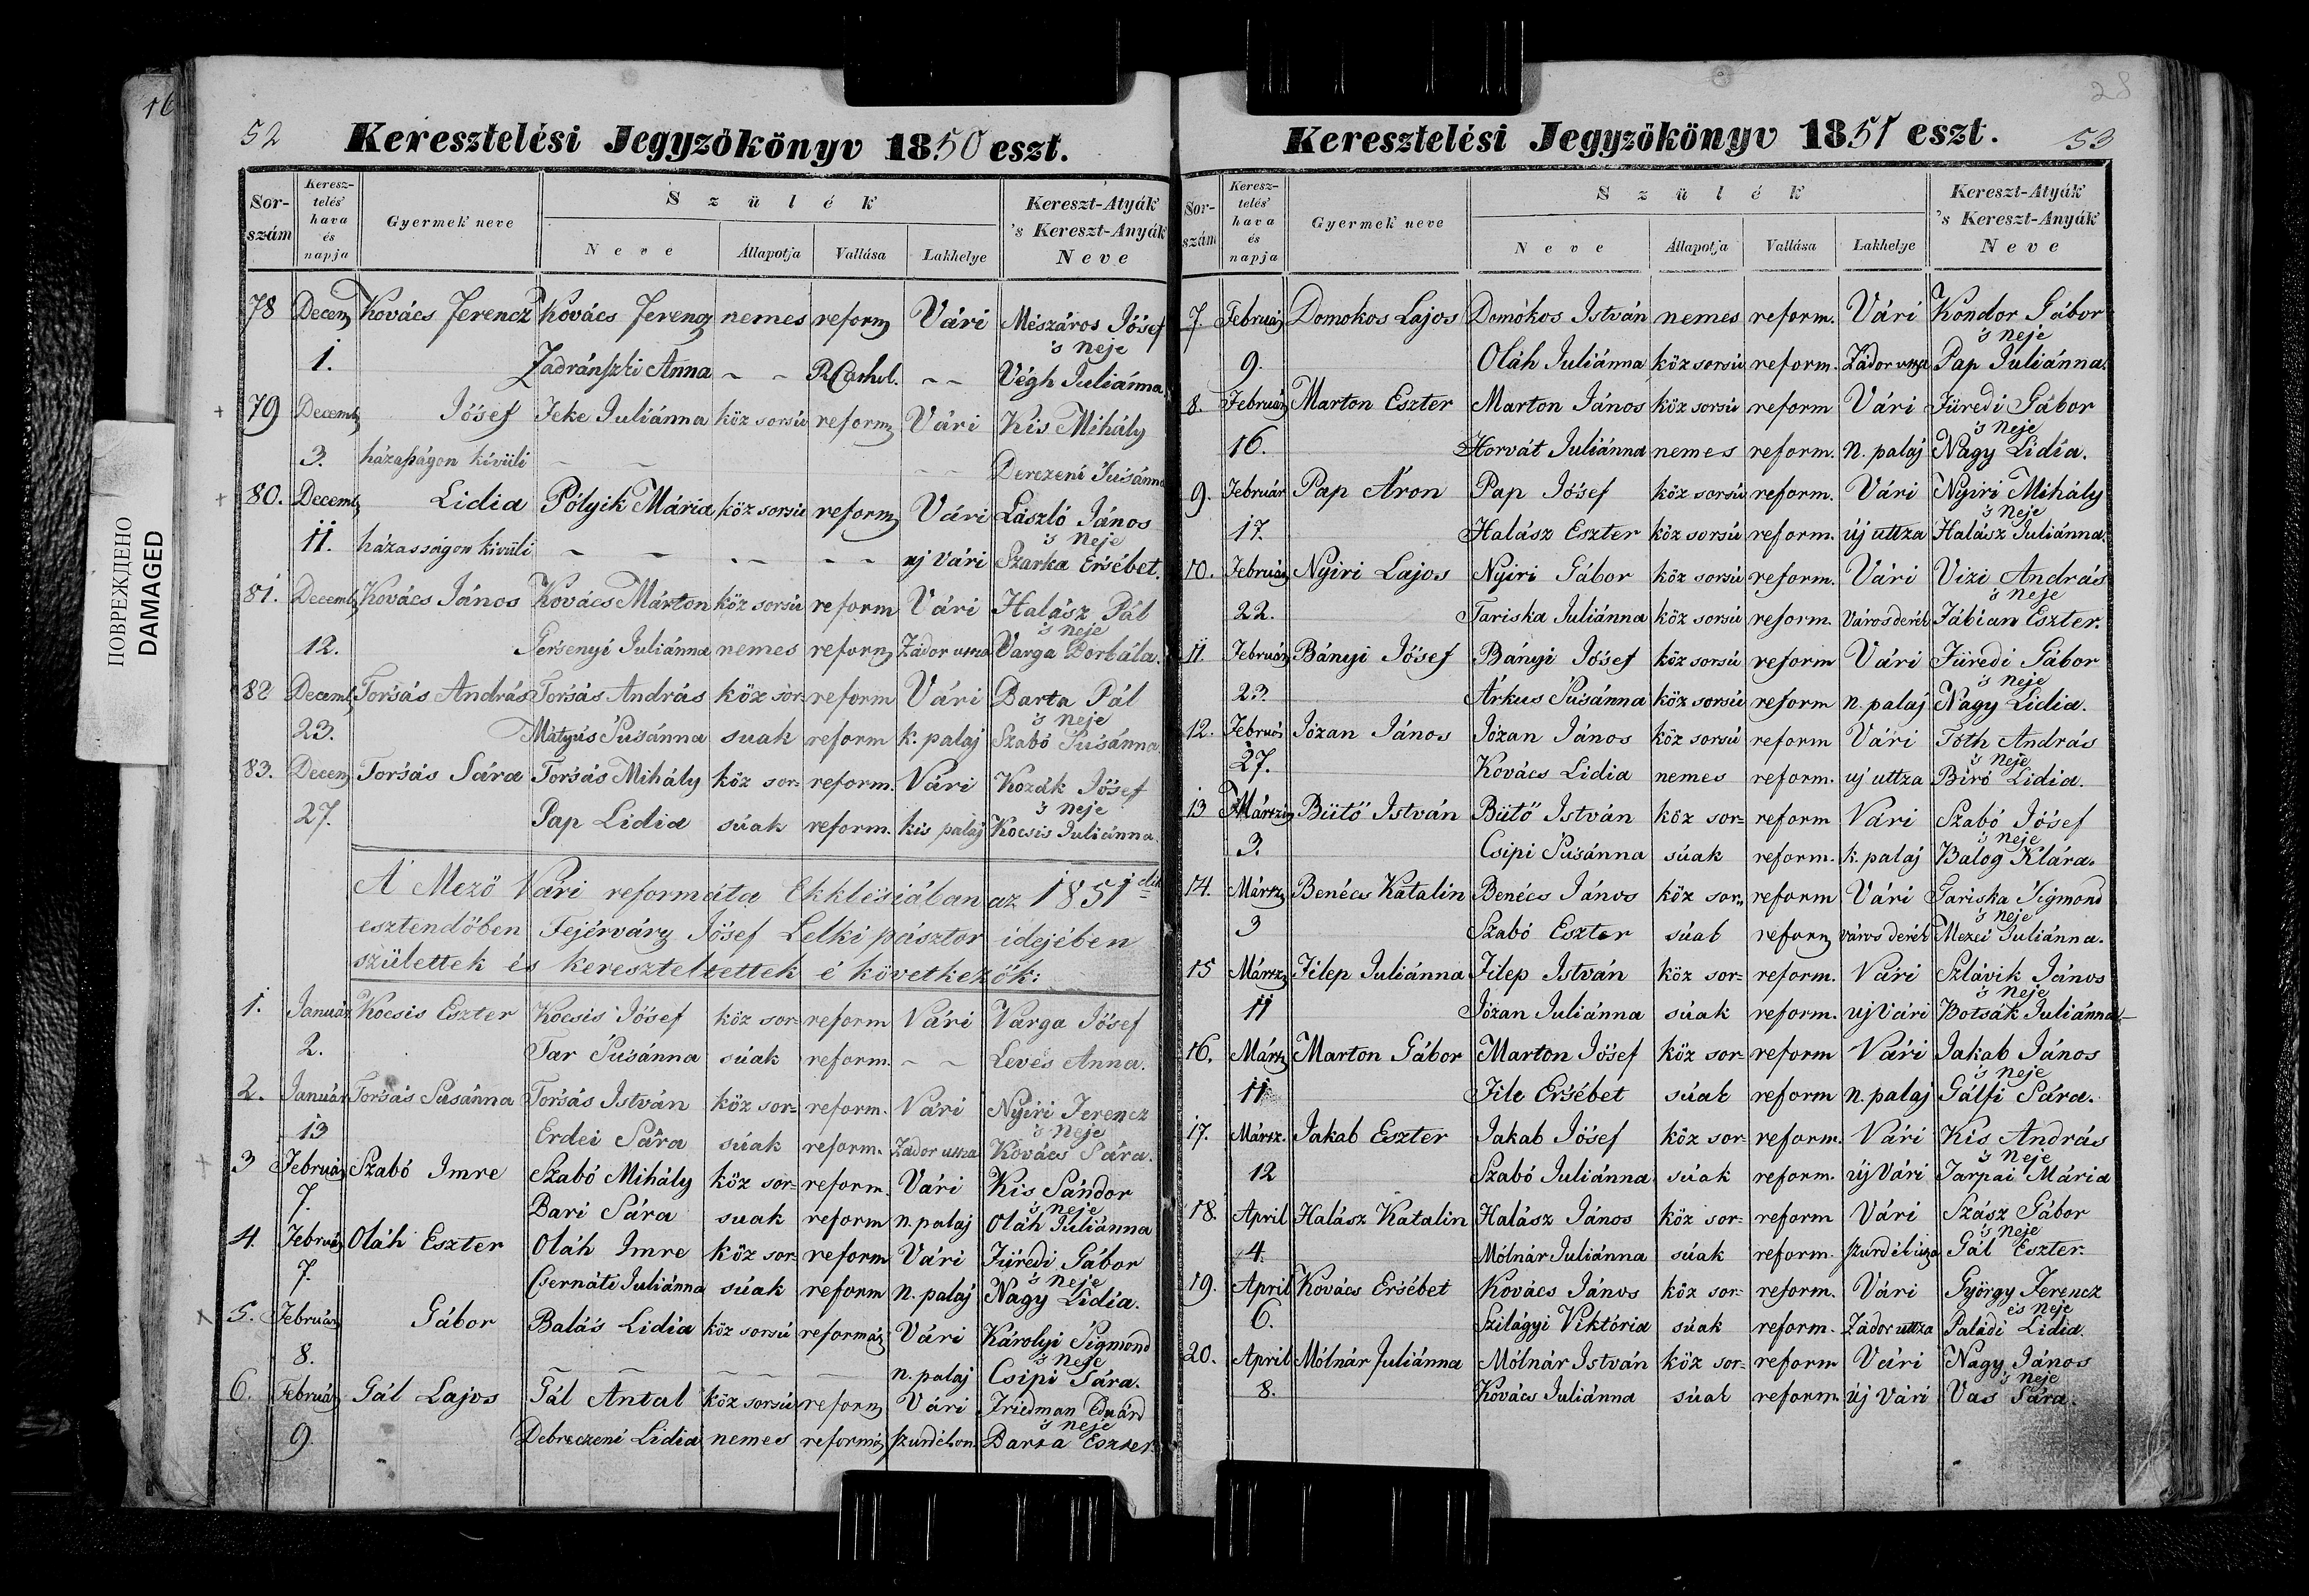 16
ПОВРЕЖДЕНО
DAMAGED
52
Keresztelési Jegyzökönyv 1850 eszt.
Sor-szám Keresz-telés' hava és napja Gyermek neve Szülék Kereszt-Atyák 's Kereszt-Anyák Neve
Neve Állapotja Vallása Lakhelye
78 Decem Kovács Ferencz Kovács Ferencz nemes reform Vári Mészáros Jósef
's neje
1. Zadránszki Anna – – R. Cathol. – – Végh Juliánna
79 Decemb Jósef Jeke Juliánna köz sorsú reform Vári Kis Mihály
3. házasságon kivüli – – – – Derezeni Susánna
80. Decemb Lidia Pólyik Mária köz sorsú reform Vári László János
's neje
11. házasságon kivüli – – – – – – uj Vári Szarka Ersébet.
81. Decemb Kovács János Kovács Márton köz sorsú reform Vári Halász Pál
's neje
12. Gersenyi Juliánna nemes reform Zádor utsza Varga Borbála.
82 Decemb Torsás András Torsás András köz sor- reform Vári Barta Pál
's neje
23. Mátyus Susánna suak reform k. palaj Szabó Susánna
83. Decem Torsás Sára Torsás Mihály köz sor- reform. Vári Kozák Jósef
's neje
27. Pap Lidia súak reform. kis palaj Kocsis Juliánna
A Mező Vári reformáta Ekklésiában az 1851dik
esztendőben Fejérváry Jósef Lelki pásztor idejében
születtek és kereszteltettek é következők:
1. Január Kocsis Eszter Kocsis Jósef köz sor- reform Vári Varga Jósef
2. Tar Susánna súak reform. – – Levés Anna.
2. Január Torsás Susánna Torsás István köz sor- reform. Vári Nyiri Ferencz
's neje
13 Erdei Sára súak reform. Zádor utsza Kovács Sára.
3 Február Szabó Imre Szabó Mihály köz sor- reform. Vári Kis Sándor
's neje
7. Bari Sára suak reform n. palaj Oláh Juliánna
4. Február Oláh Eszter Oláh Imre köz sor- reform Vári Füredi Gábor
's neje
7. Csernáti Juliánna súak reform n. palaj Nagy Lidia.
5. Február Gábor Balás Lidia köz sorsú reformá Vári Károlyi Sigmond
's neje
8. – – – n. palaj Csipi Sára.
6. Február Gál Lajos Gál Antal köz sorsú reform Vári Friedman Eduárd
's neje
9. Debreczeni Lidia nemes reformá Barta Eszter
28
Keresztelési Jegyzökönyv 1851 eszt. 53
Sor-szám Keresz-telés' hava és napja Gyermek neve Szülék Kereszt-Atyák 's Kereszt-Anyák Neve
Neve Állapotja Vallása Lakhelye
7. Február Domokos Lajos Domokos István nemes reform. Vári Kondor Gábor
's neje
9. Oláh Juliánna köz sorsú reform. Zádor utsza Pap Juliánna.
8. Február Marton Eszter Marton János köz sorsú reform Vári Füredi Gábor
's neje
16. Horvát Juliánna nemes reform. n. palaj Nagy Lidia.
9. Február Pap Áron Pap Jósef köz sorsú reform. Vári Nyiri Mihály
's neje
17. Halász Eszter köz sorsú reform. új uttza Halász Juliánna.
10. Február Nyiri Lajos Nyiri Gábor köz sorsú reform. Vári Vizi András
's neje
22. Tariska Juliánna köz sorsú reform. Város derék Fábian Eszter.
11. Február Bányi Jósef Bányi Jósef köz sorsú reform Vári Füredi Gábor
's neje
23. Árkus Susánna köz sorsú reform n. palaj Nagy Lidia.
12. Február Józan János Józan János köz sorsú reform Vári Tóth András
's neje
27. Kovács Lidia nemes reform. uj uttza Biró Lidia.
13 Márczi Bütő István Bütő István köz sor= reform Vári Szabó Jósef
's neje
3. Csipi Susánna súak reform. k. palaj Balog Klára.
14. Március Benécs Katalin Benécs János köz sor- reform Vári Tariska Sigmond
's neje
3 Szabó Eszter súak reform város derék Mezei Juliánna.
15 Mársz Filep Juliánna Filep István köz sor= reform. Vári Szlávik János
's neje
11 Józan Juliánna súak reform. uj Vári Botsák Juliánna
16. Mársz Marton Gábor Marton Jósef köz sor= reform Vári Jakab János
's neje
11 File Ersébet súak reform n. palaj Gálfi Sára.
17. Mársz. Jakab Eszter Jakab Jósef köz sor= reform. Vári Kis András
's neje
12 Szabó Juliánna súak reform. új Vári Tarpai Mária
18. April Halász Katalin Halász János köz sor= reform Vári Szász Gábor
's neje
4. Mólnár Juliánna súak reform. Gál Eszter.
19. April Kovács Ersébet Kovács János köz sor- reform. Vári György Ferencz
és neje
6. Szilágyi Viktória súak reform. Zádor uttza Paládi Lidia.
20. April Mólnár Juliánna Mólnár István köz sor= reform Vári Nagy János
's neje
8. Kovács Juliánna súak reform. új Vári Vas Sára.